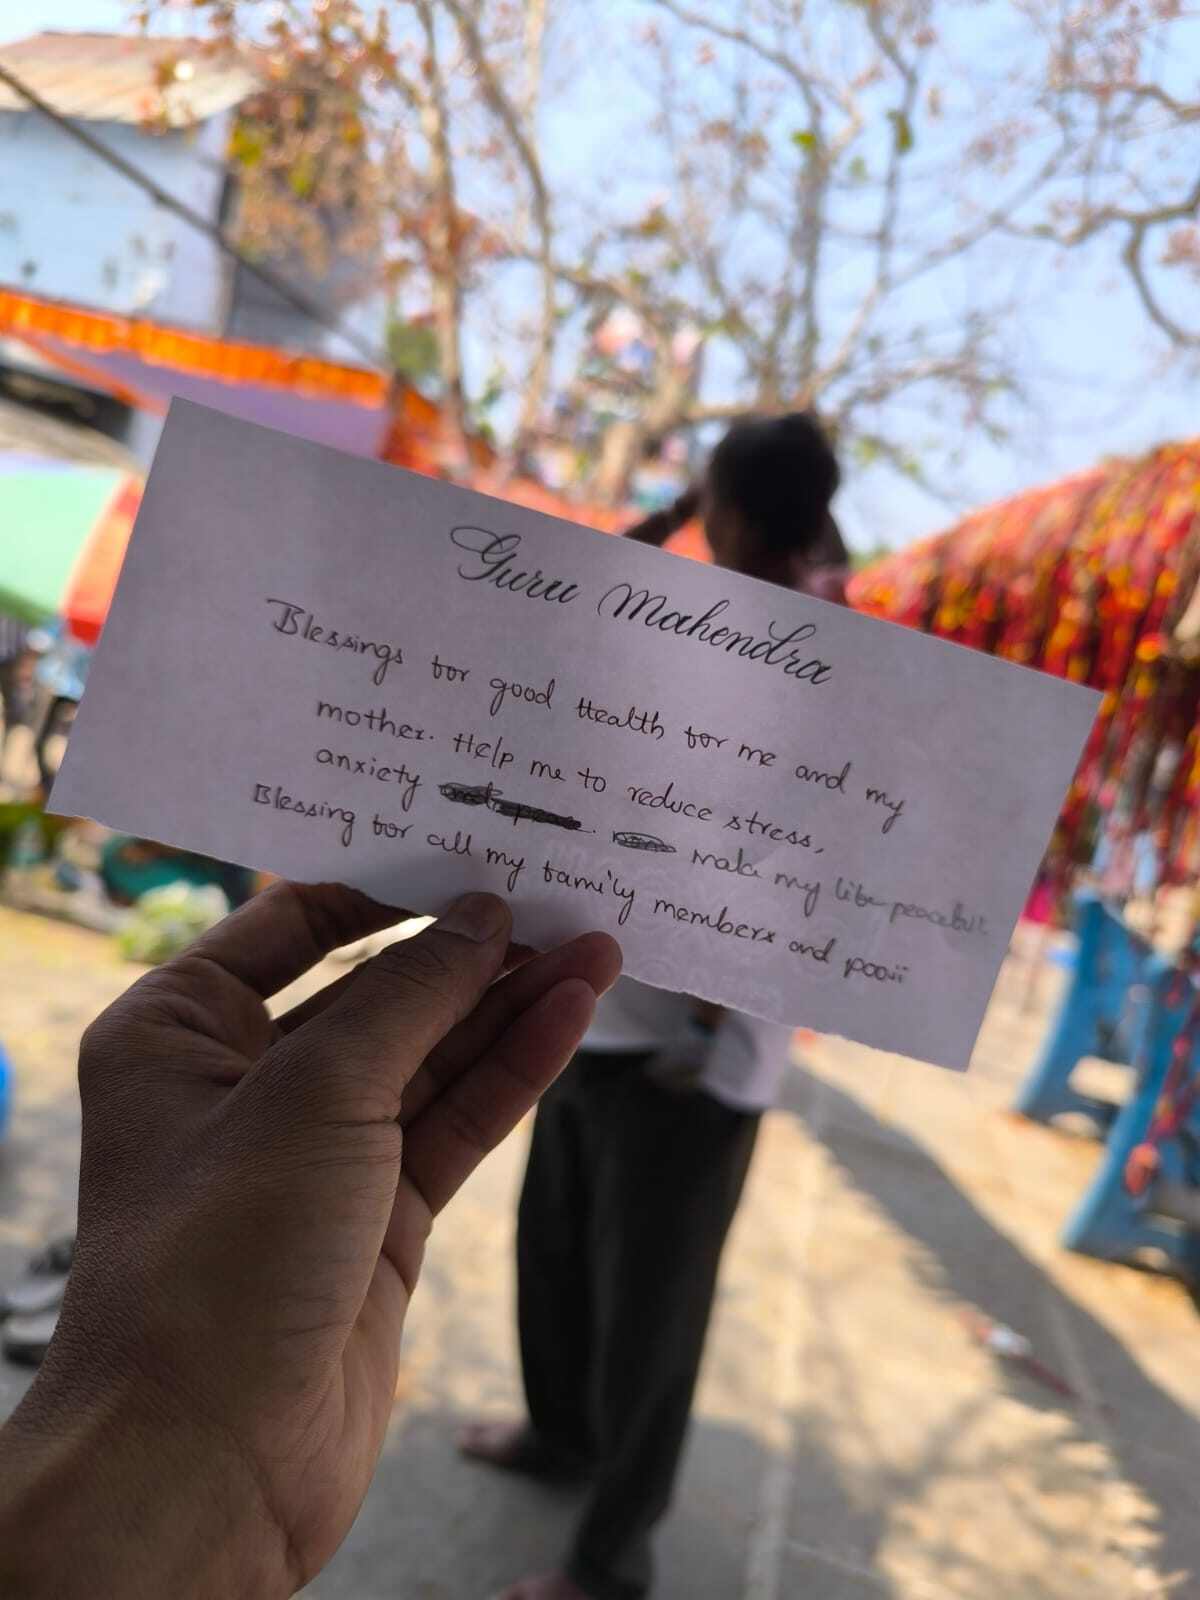 Guru Mahendra
Blessings for good Health for me and my
mother. Help me to reduce stress,
anxiety make my life peaceful
Blessing for all my family members and